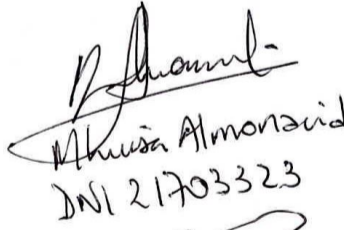 MLuisa Almonacid
DNI 21703323